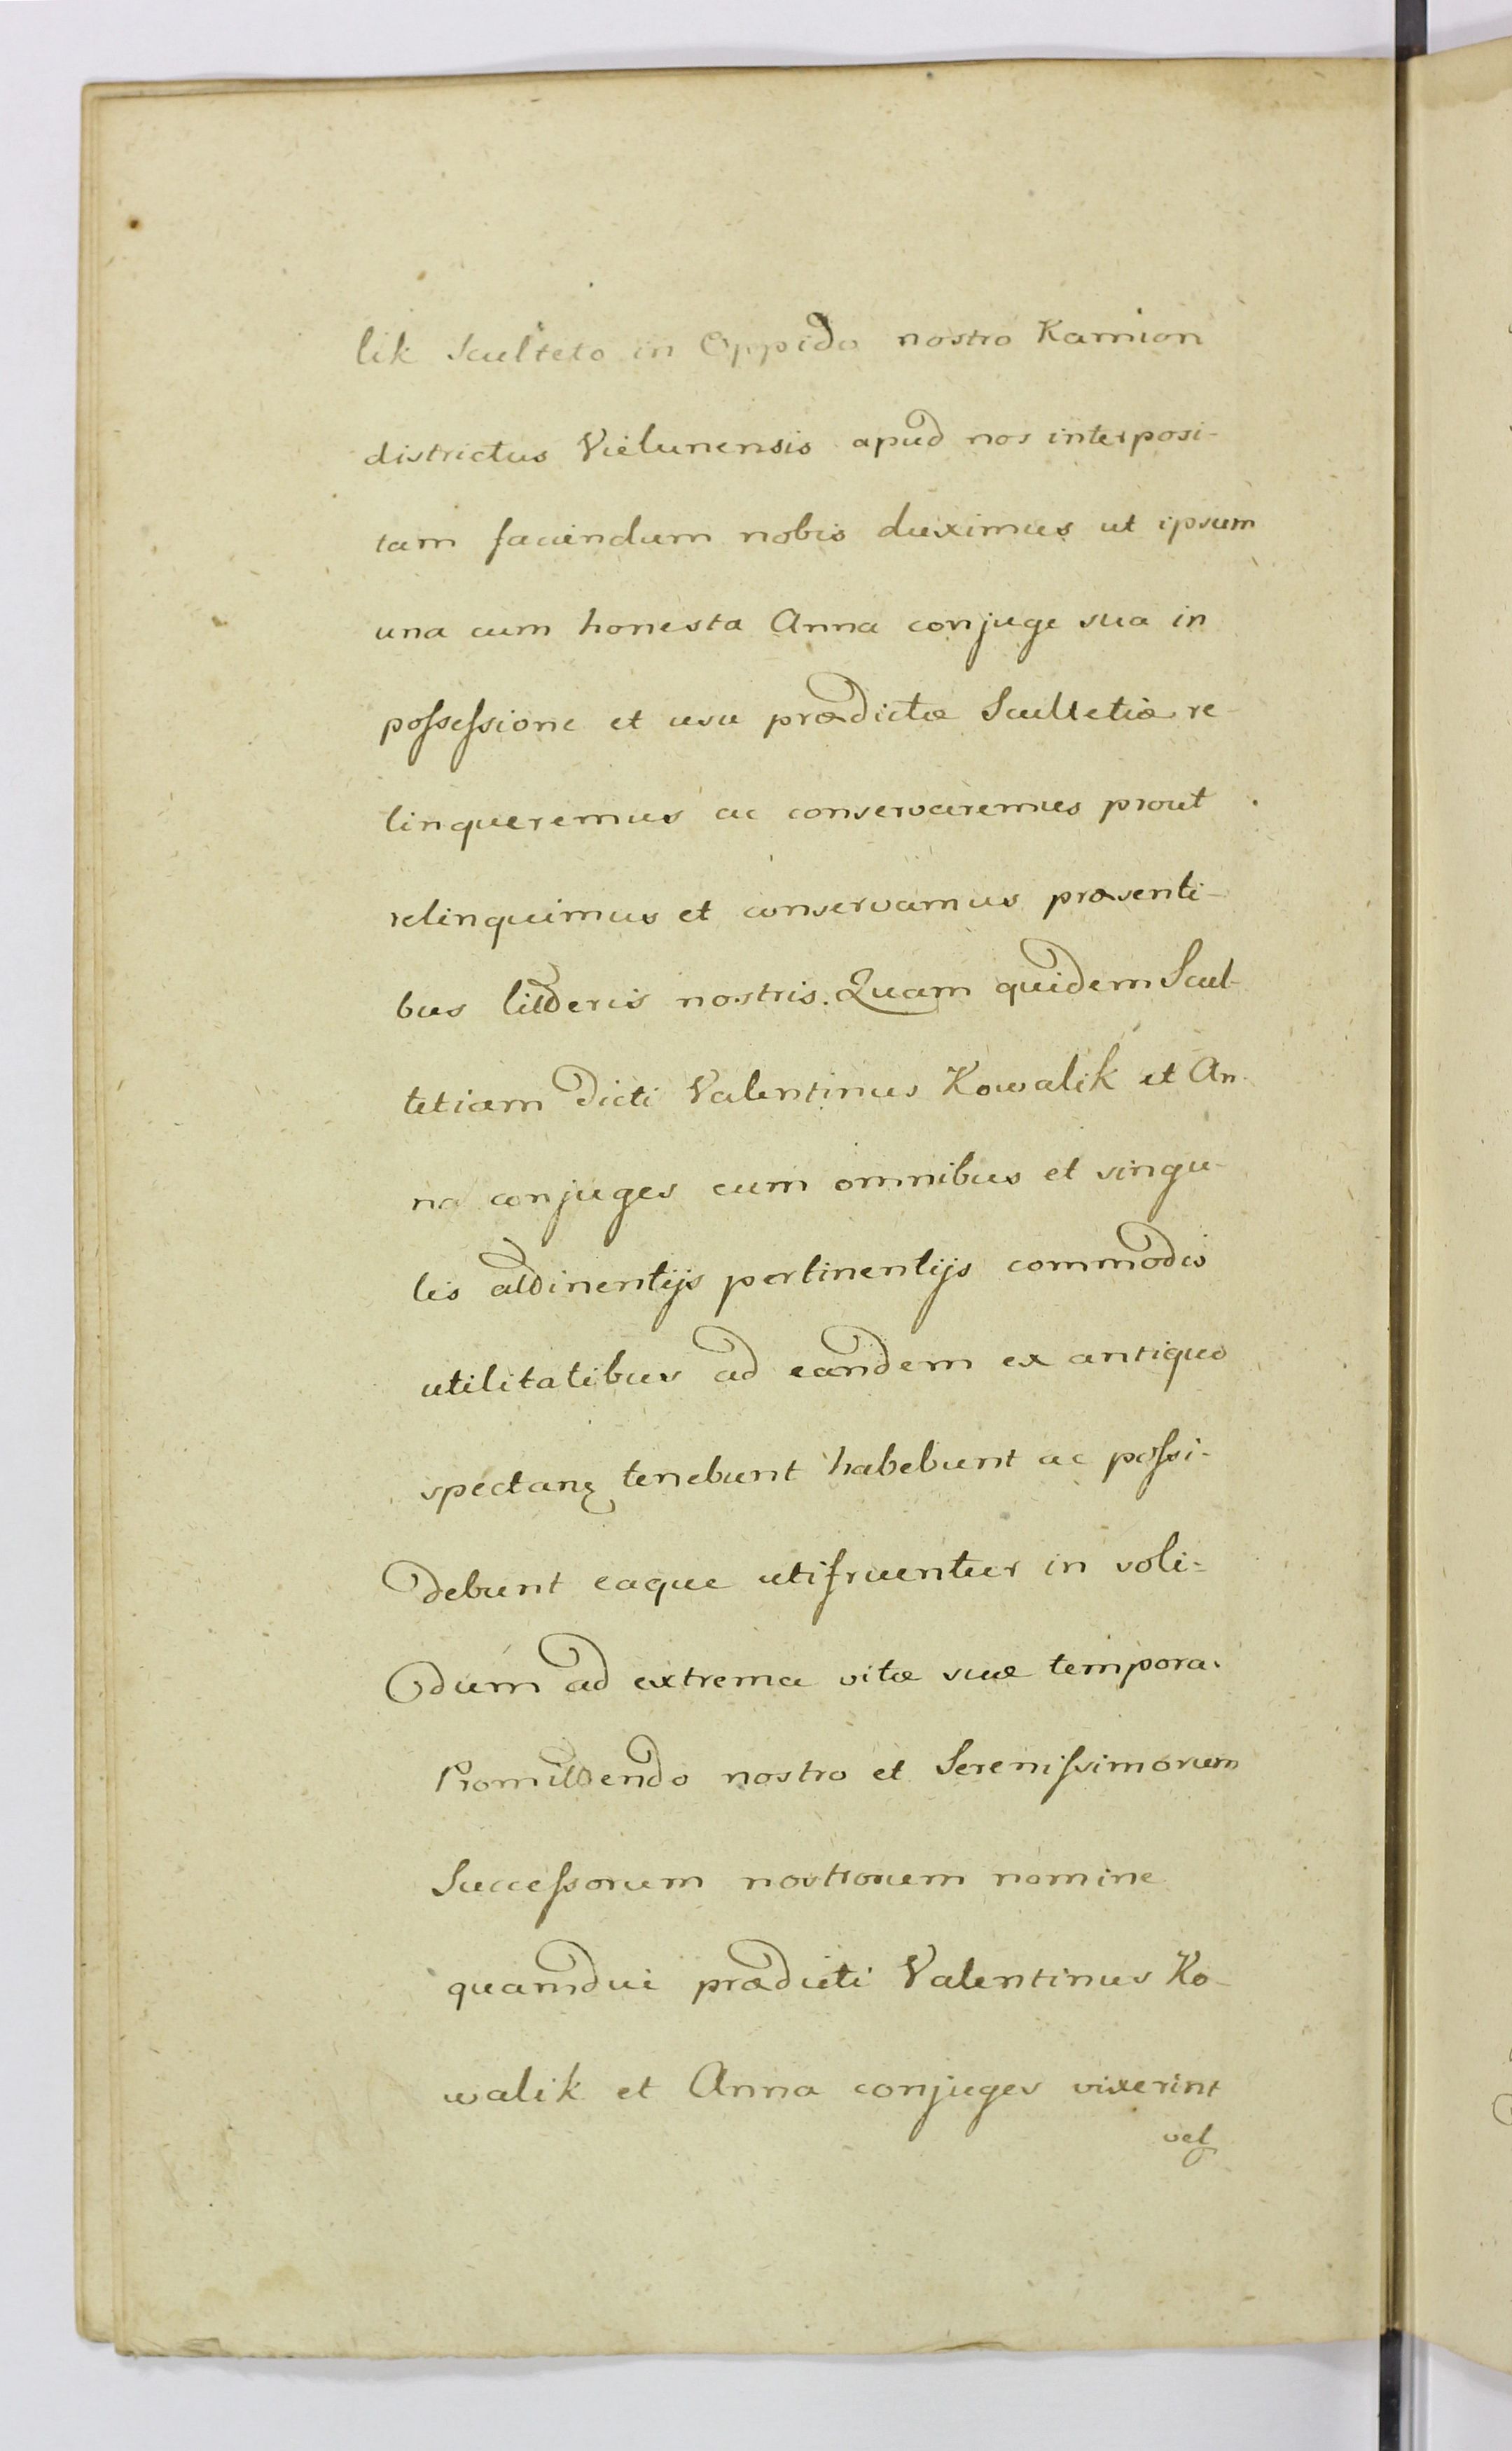 lik Sculteto in Oppido nostro Kamion
districtus Vielunensis apud nos interposi-
tam faciendum nobis duximus ut ipsum
una cum honesta Anna conjuge sua in
possessione et usu prædictæ Scultetiæ re-
linqueremus ac conservaremus prout
relinquimus et conservamus præsenti-
bus litteris nostris. Quam quidem Scul-
tetiam dicti Valentinus Kowalik et An-
na conjuges cum omnibus et singu-
lis attinentijs pertinentijs commodis
utilitatibus ad eandem ex antiquo
spectanę tenebunt habebunt ac possi-
debunt eaque utifruentur in soli-
dum ad extrema vitæ suæ tempora.
Promittendo nostro et Serenissimorum
Successorum nostrorum nomine
quamdui prædicti Valentinus Ko-
walik et Anna conjuges vixerint
vel